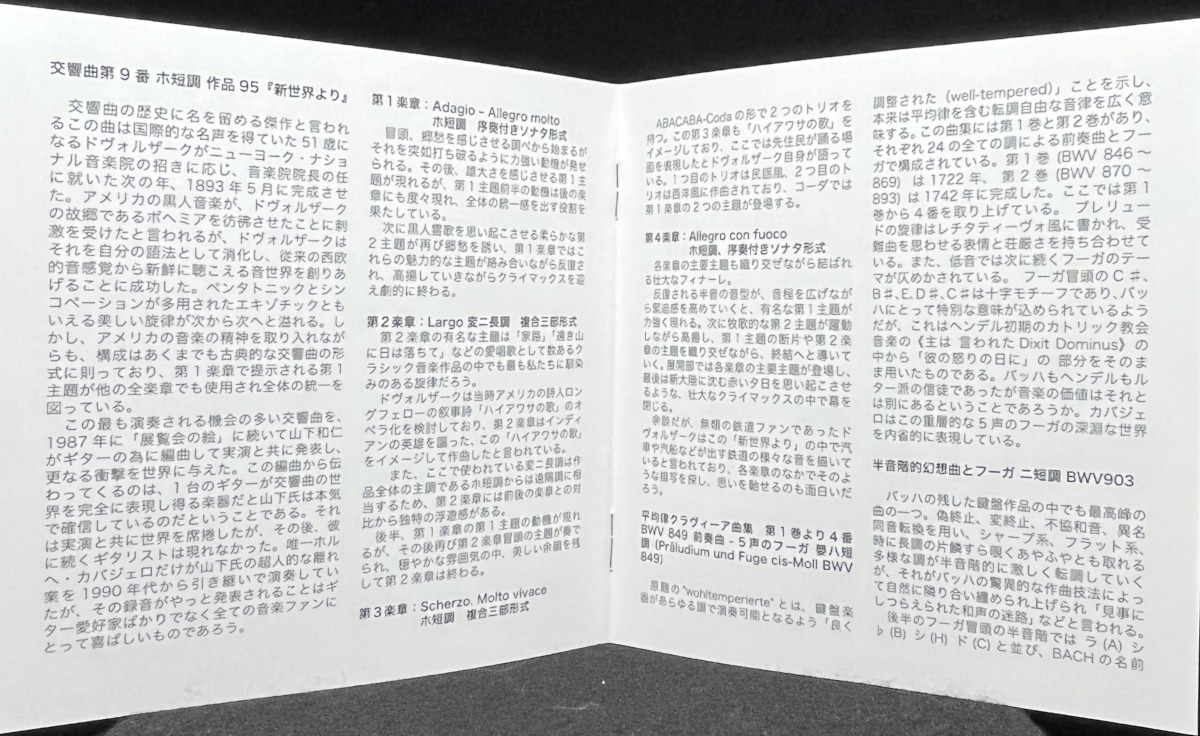 交響曲第9番 ホ短調 作品95『新世界より』
交響曲の歴史に名を留める傑作と言われ
るこの曲は国際的な名声を得ていた51歳に
なるドヴォルザークがニューヨーク・ナショ
ナル音楽院の招きに応じ、音楽院院長の任
に就いた次の年、1893年5月に完成させ
た。アメリカの黒人音楽が、ドヴォルザーク
の故郷であるボヘミアを彷彿させたことに刺
激を受けたと言われるが、ドヴォルザークは
それを自分の語法として消化し、従来の西欧
的音感覚から新鮮に聴こえる音世界を創りあ
げることに成功した。ペンタトニックとシン
コペーションが多用されたエキゾチックとも
いえる美しい旋律が次から次へと溢れる。し
かし、アメリカの音楽の精神を取り入れなが
らも、構成はあくまでも古典的な交響曲の形
式に則っており、第1楽章で提示される第1
主題が他の全楽章でも使用され全体の統一を
図っている。
この最も演奏される機会の多い交響曲を、
1987年に「展覧会の絵」に続いて山下和仁
がギターの為に編曲して実演と共に発表し、
更なる衝撃を世界に与えた。この編曲から伝
わってくるのは、1台のギターが交響曲の世
界を完全に表現し得る楽器だと山下氏は本気
で確信しているのだということである。それ
は実演と共に世界を席捲したが、その後、彼
に続くギタリストは現れなかった。唯一ホル
ヘ・カバジェロだけが山下氏の超人的な離れ
業を1990年代から引き継いで演奏してい
たが、その録音がやっと発表されることはギ
ター愛好家ばかりでなく全ての音楽ファンに
とって喜ばしいものであろう。
第1楽章：Adagio – Allegro molto
ホ短調 序奏付きソナタ形式
冒頭、郷愁を感じさせる調べから始まるが
それを突如打ち破るように力強い動機が発せ
られる。その後、雄大さを感じさせる第1主
題が現れるが、第1主題前半の動機は後の楽
章にも度々現れ、全体の統一感を出す役割を
果たしている。
次に黒人霊歌を思い起こさせる柔らかな第
2主題が再び郷愁を誘い、第1楽章ではこ
れらの魅力的な主題が絡み合いながら反復さ
れ、高揚していきながらクライマックスを迎
え劇的に終わる。
第2楽章：Largo 変ニ長調 複合三部形式
第2楽章の有名な主題は「家路」「遠き山
に日は落ちて」などの愛唱歌として数あるク
ラシック音楽作品の中でも最も私たちに馴染
みのある旋律だろう。
ドヴォルザークは当時アメリカの詩人ロン
グフェローの叙事詩「ハイアワサの歌」のオ
ペラ化を検討しており、第2楽章はインディ
アンの英雄を謳った、この「ハイアワサの歌」
をイメージして作曲したと言われている。
また、ここで使われている変ニ長調は作
品全体の主調であるホ短調からは遠隔調に相
当するため、第2楽章には前後の楽章との対
比から独特の浮遊感がある。
後半、第1楽章の第1主題の動機が現れ
るが、その後再び第2楽章冒頭の主題が奏で
られ、穏やかな雰囲気の中、美しい余韻を残
して第2楽章は終わる。
第3楽章：Scherzo. Molto vivace
ホ短調 複合三部形式
ABACABA-Codaの形で2つのトリオを
持つ。この第3楽章も「ハイアワサの歌」を
イメージしており、ここでは先住民が踊る場
面を表現したとドヴォルザーク自身が語って
いる。1つ目のトリオは民謡風、2つ目のト
リオは西洋風に作曲されており、コーダでは
第1楽章の2つの主題が登場する。
第4楽章：Allegro con fuoco
ホ短調、序奏付きソナタ形式
各楽章の主要主題も織り交ぜながら結ばれ
る壮大なフィナーレ。
反復される半音の音型が、音程を広げなが
ら緊迫感を高めていくと、有名な第1主題が
力強く現れる。次に牧歌的な第2主題が躍動
しながら高揚し、第1主題の断片や第2楽
章の主題を織り交ぜながら、終結へと導いて
いく。展開部では各楽章の主要主題が登場し、
最後は新大陸に沈む赤い夕日を思い起こさせ
るような、壮大なクライマックスの中で幕を
閉じる。
余談だが、無類の鉄道ファンであったド
ヴォルザークはこの「新世界より」の中で汽
車や汽船などが出す鉄道の様々な音を描いて
いると言われており、各楽章のなかでそのよ
うな描写を探し、思いを馳せるのも面白いだ
ろう。
平均律クラヴィーア曲集 第1巻より4番
BWV 849 前奏曲 - 5声のフーガ 嬰ハ短
調 (Präludium und Fuge cis-Moll BWV
849)
原題の"wohltemperierte"とは、鍵盤楽
器があらゆる調で演奏可能となるよう「良く
調整された（well-tempered）」ことを示し、
本来は平均律を含む転調自由な音律を広く意
味する。この曲集には第1巻と第2巻があり、
それぞれ24の全ての調による前奏曲とフー
ガで構成されている。第1巻（BWV 846～
869）は1722年、第2巻（BWV 870～
893）は1742年に完成した。ここでは第1
巻から4番を取り上げている。 プレリュー
ドの旋律はレチタティーヴォ風に書かれ、受
難曲を思わせる表情と荘厳さを持ち合わせて
いる。また、低音では次に続くフーガのテー
マが仄めかされている。 フーガ冒頭のC♯、
B♯、E、D♯、C♯は十字モチーフであり、バッ
ハにとって特別な意味が込められているよう
だが、これはヘンデル初期のカトリック教会
音楽の《主は 言われたDixit Dominus》の
中から「彼の怒りの日に」の 部分をそのま
ま用いたものである。バッハもヘンデルもル
ター派の信徒であったが音楽の価値はそれと
は別にあるということであろうか。カバジェ
ロはこの重層的な5声のフーガの深淵な世界
を内省的に表現している。
半音階的幻想曲とフーガ ニ短調 BWV903
バッハの残した鍵盤作品の中でも最高峰の
曲の一つ。偽終止、変終止、不協和音、異名
同音転換を用い、シャープ系、フラット系、
時に長調の片鱗すら覗くあやふやとも取れる
多様な調が半音階的に激しく転調していく
が、それがバッハの驚異的な作曲技法によっ
て自然に隣り合い纏められ上げられ「見事に
しつらえられた和声の迷路」などと言われる。
後半のフーガ冒頭の半音階では ラ(A) シ
♭(B) シ(H) ド(C)と並び、BACHの名前